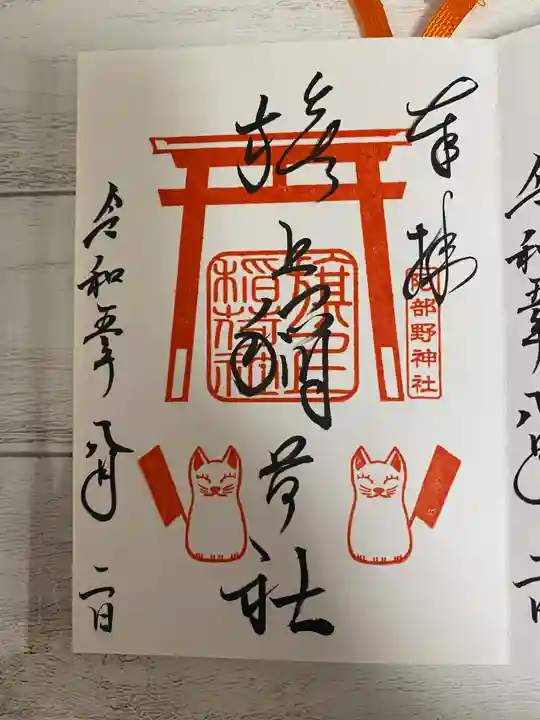 奉拝
阿部野神社
旗上稲荷社
旗上
稲荷社
令和五年 八月 二日
令和五年 八月 二日